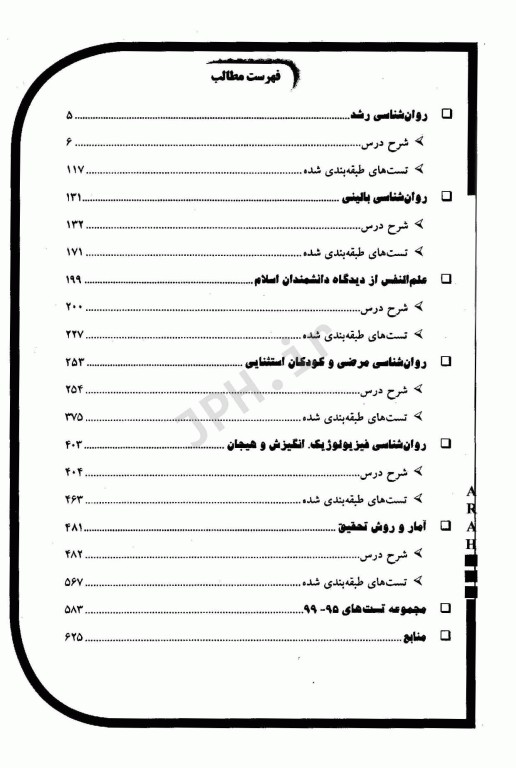 فهرست مطالب
❑ روان‌شناسی رشد ........ ۵
➢ شرح درس ........ ۶
➢ تست‌های طبقه‌بندی شده ........ ۱۱۷
❑ روان‌شناسی بالینی ........ ۱۳۱
➢ شرح درس ........ ۱۳۲
➢ تست‌های طبقه‌بندی شده ........ ۱۷۱
❑ علم‌النفس از دیدگاه دانشمندان اسلام ........ ۱۹۹
➢ شرح درس ........ ۲۰۰
➢ تست‌های طبقه‌بندی شده ........ ۲۲۷
❑ روان‌شناسی مرضی و کودکان استثنایی ........ ۲۵۳
➢ شرح درس ........ ۲۵۴
➢ تست‌های طبقه‌بندی شده ........ ۳۷۵
❑ روان‌شناسی فیزیولوژیک، انگیزش و هیجان ........ ۴۰۳
➢ شرح درس ........ ۴۰۴
➢ تست‌های طبقه‌بندی شده ........ ۴۶۳
❑ آمار و روش تحقیق ........ ۴۸۱
➢ شرح درس ........ ۴۸۲
➢ تست‌های طبقه‌بندی شده ........ ۵۶۷
❑ مجموعه تست‌های ۹۵- ۹۹ ........ ۵۸۳
❑ منابع ........ ۶۲۵
ARAH
JPH.ir